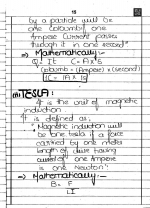 15
by a particle will be
one coloumb if one
Ampere Current passes
through it in one second"
⇒ Mathematically:-
Q = It C = A×S
(coloumb = (Ampere) × (second)
1C = 1A × 1S
TESLA:
It is the unit of magnetic
induction.
It is defined as:
"Magnetic induction will
be one tesla if a force
carried by one meter
length of wire having
current of one Ampere
is one Newton"
⇒ Mathematically:-
B = F
LI